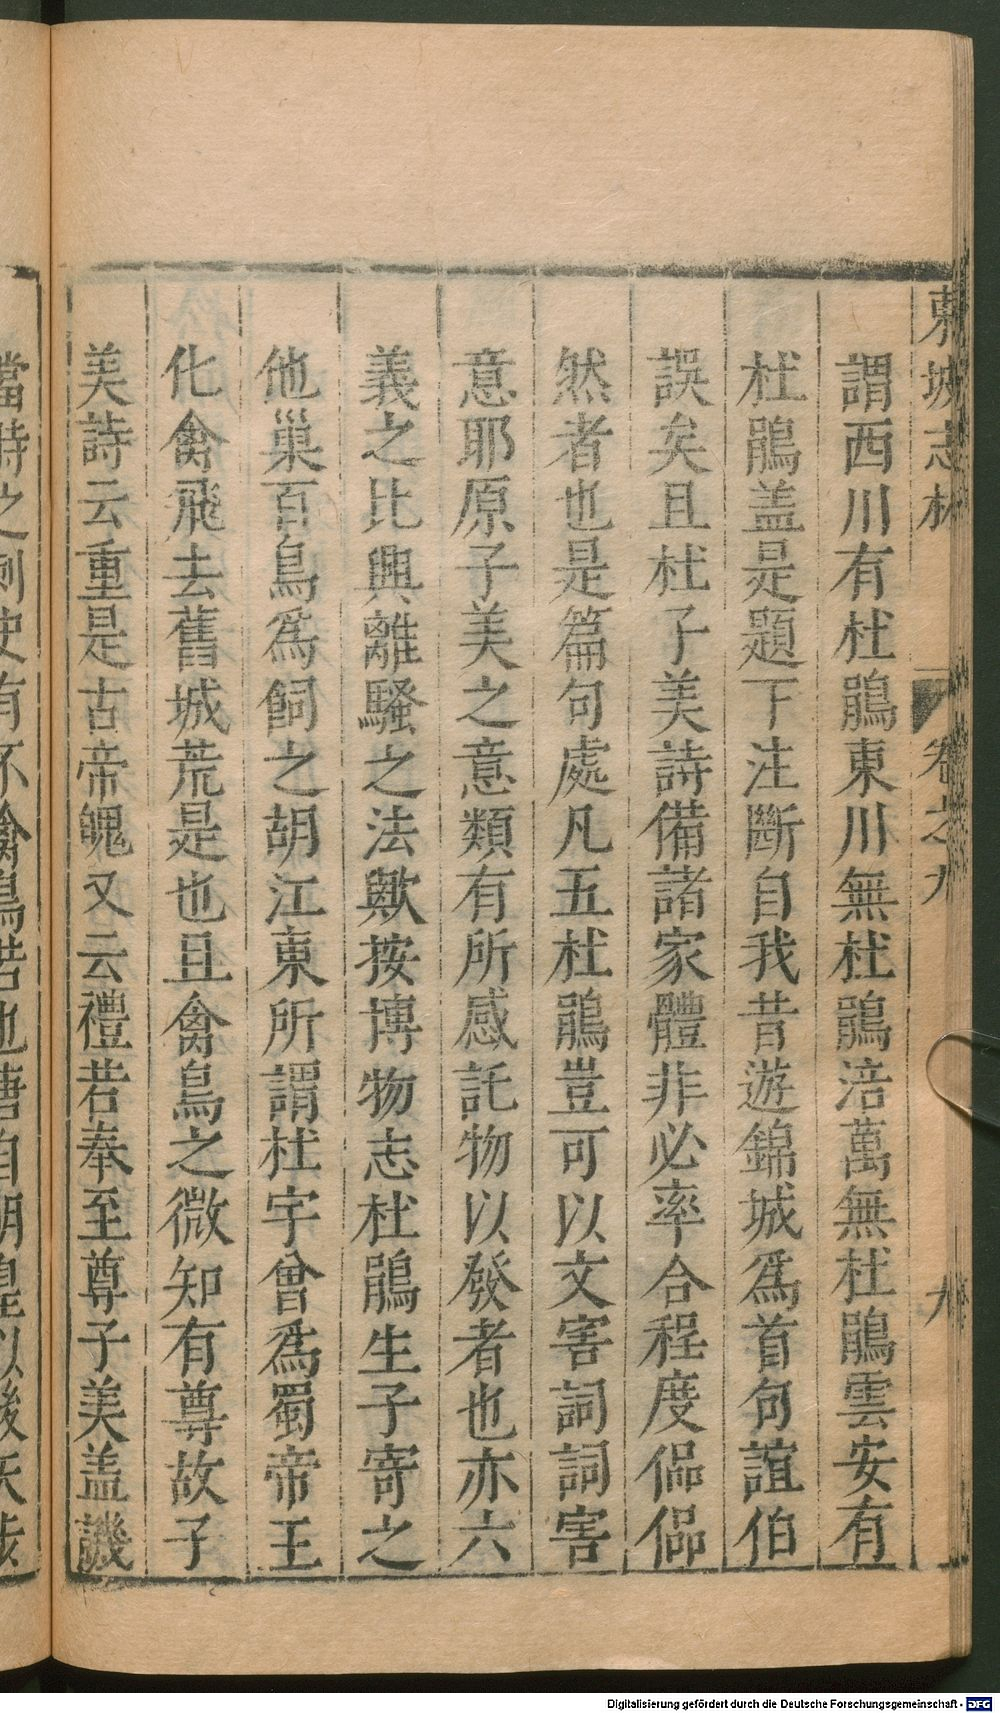 東坡志林 卷之九 九
謂西川有杜鵑東川無杜鵑涪萬無杜鵑雲安有
杜鵑盖是題下注斷自我昔遊錦城爲首句誼伯
誤矣且杜子美詩備諸家體非必率合程度侷侷
然者也是篇句處凡五杜鵑豈可以文害詞詞害
意耶原子美之意類有所感託物以發者也亦六
義之比興離騷之法歟按博物志杜鵑生子寄之
他巢百鳥爲飼之胡江東所謂杜宇曾爲蜀帝王
化禽飛去舊城荒是也且禽鳥之微知有尊故子
美詩云重是古帝魄又云禮若奉至尊子美盖譏
當時之刺史有不禽鳥若也唐自明皇以後天
Digitalisierung gefördert durch die Deutsche Forschungsgemeinschaft - DFG